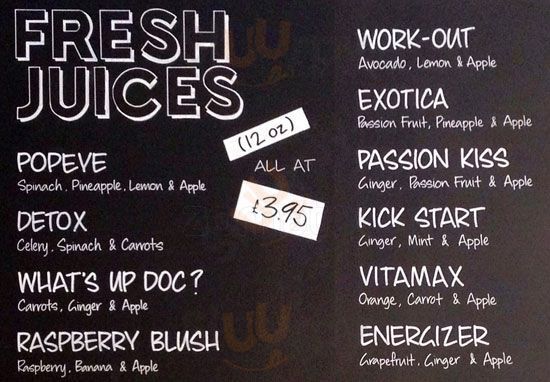 FRESH
JUICES
(12 oz)
ALL AT
£3.95
POPEYE
Spinach, Pineapple, Lemon & Apple
DETOX
Celery, Spinach & Carrots
WHAT'S UP DOC?
Carrots, Ginger & Apple
RASPBERRY BLUSH
Raspberry, Banana & Apple
WORK-OUT
Avocado, Lemon & Apple
EXOTICA
Passion Fruit, Pineapple & Apple
PASSION KISS
Ginger, Passion Fruit & Apple
KICK START
Ginger, Mint & Apple
VITAMAX
Orange, Carrot & Apple
ENERGIZER
Grapefruit, Ginger & Apple